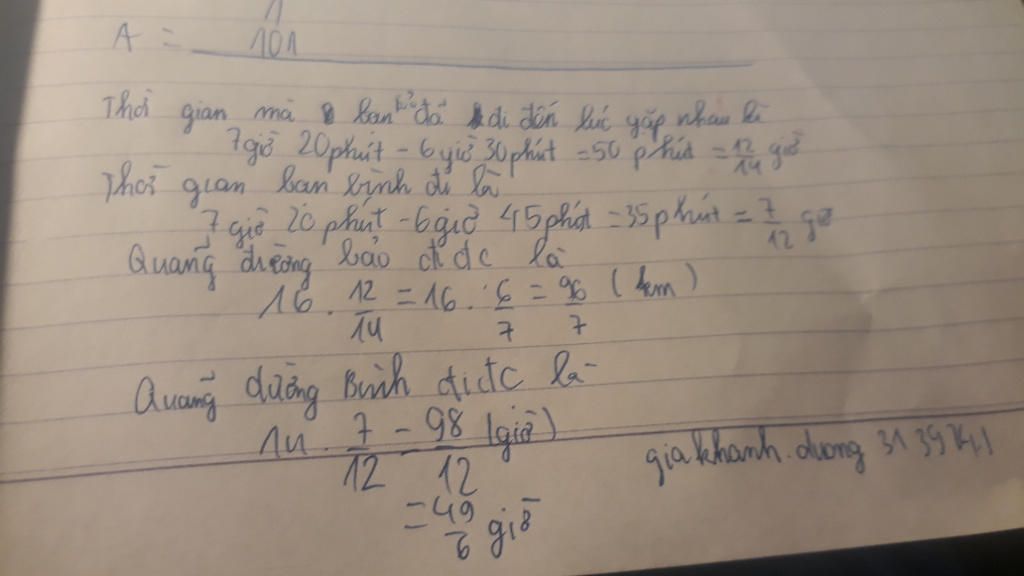 1
A = 101
Thời gian mà bạn bảo đã đi đến lúc gặp nhau là
7giờ 20phút - 6giờ 30phút = 50 phút = 12/14 giờ
Thời gian bạn bình đi là
7 giờ 20 phút - 6giờ 45 phút = 35 phút = 7/12 giờ
Quãng đường bảo đi đc là
16 . 12/14 = 16 . 6/7 = 96/7 (km)
Quãng đường Bình đi đc là
14 . 7/12 = 98/12 (giờ)
giakhanh.duong 31
= 49/6 giờ